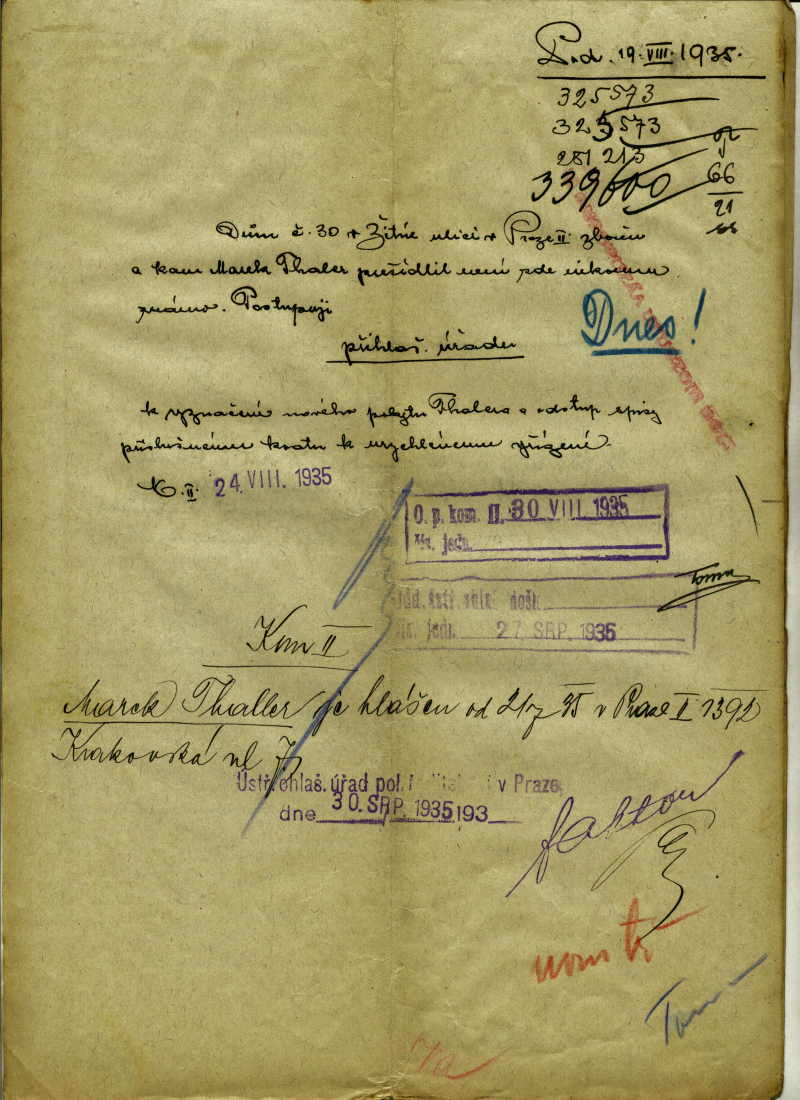 Pod. 19. VIII. 1935.
325573
325573
281 213
339600
66
21
Dům č. 30 v Žitné ulici v Praze II. zbořen
a kam Marek Thaler přesídlil není zde nikomu
známo. Postupuji
přihlaš. úřadu
Dnes!
k vyznačení nového pobytu Thalera a odstup spisy
příslušnému k urychlenému zřízení.
K. II. 24. VIII. 1935
O. p. kom. II. 30 VIII 1935
čís. jedn.
došk.
čís. jedn. 27. SRP. 1935
Toma
Kom II
Marek Thaller je hlášen od 21/7 35 v Praze II 1392
Krakovská ul 7
Ústř. ohlaš. úřad pol. v Praze
dne 30. SRP. 1935 193